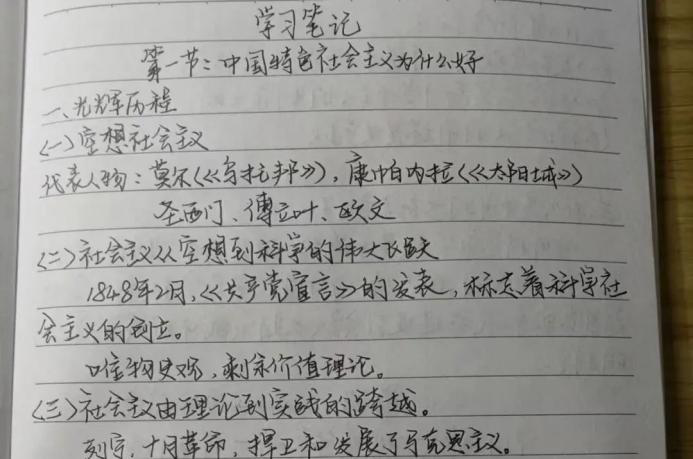 学习笔记
第一节：中国特色社会主义为什么好
一、光辉历程
(一)空想社会主义
代表人物：莫尔(《乌托邦》)，康帕内拉(《太阳城》)
圣西门、傅立叶、欧文
(二)社会主义从空想到科学的伟大飞跃
1848年2月，《共产党宣言》的发表，标志着科学社
会主义的创立。
唯物史观，剩余价值理论。
(三)社会主义由理论到实践的跨越。
列宁，十月革命，捍卫和发展了马克思主义。